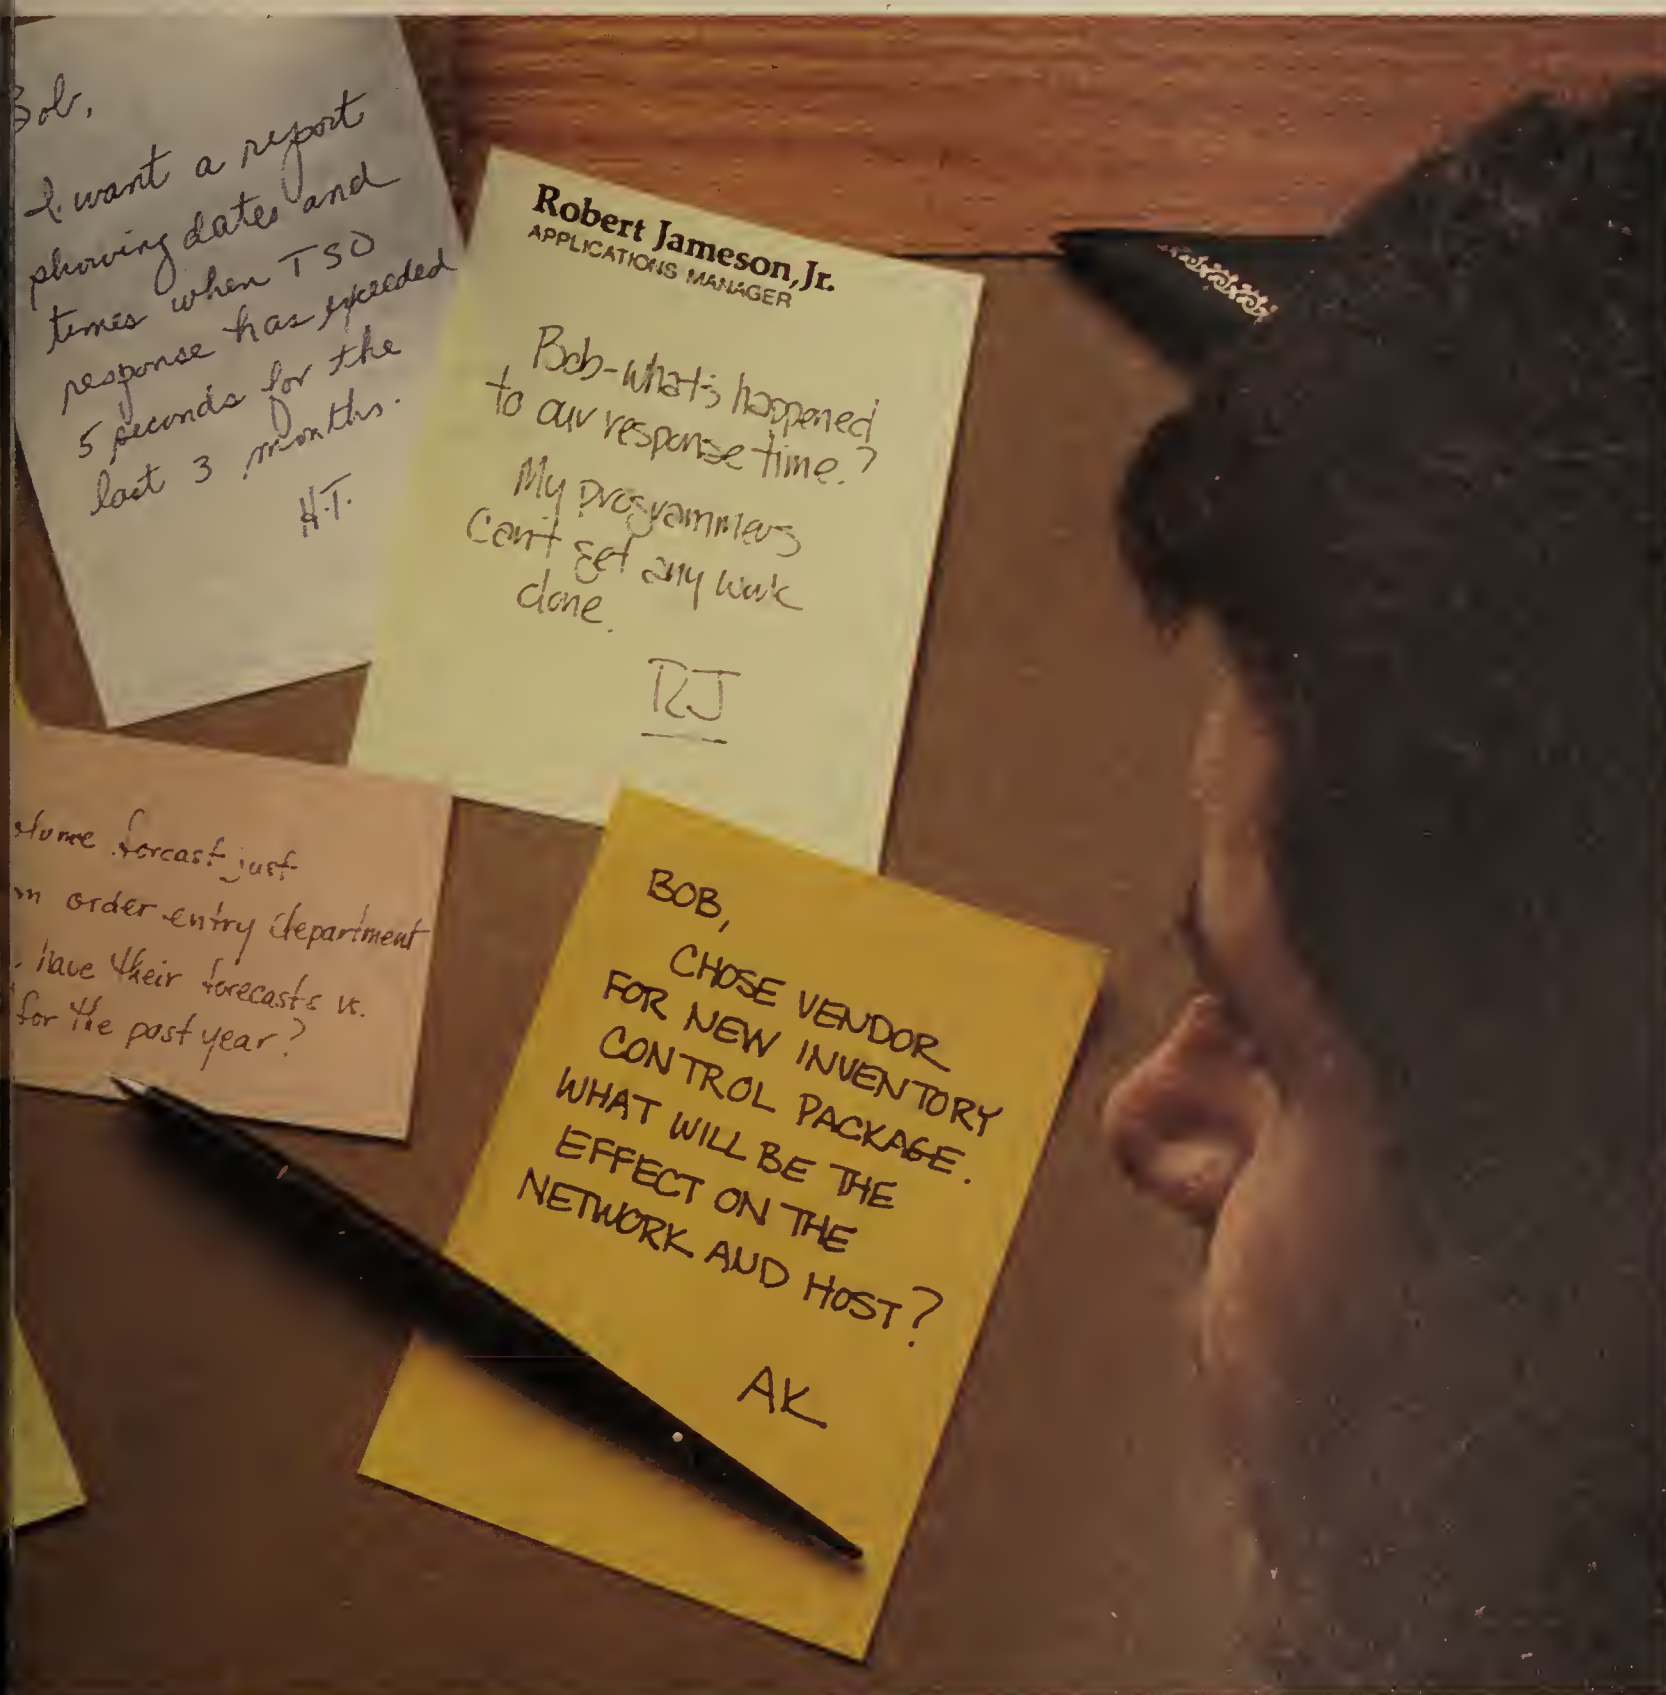 Bob,
I want a report
showing dates and
times when TSO
response has exceeded
5 seconds for the
last 3 months.
H.T.
Robert Jameson, Jr.
APPLICATIONS MANAGER
Bob-what's happened
to our response time?
My programmers
can't get any work
done.
RJ
forcast just
order entry department
have their forecasts vs.
for the past year?
BOB,
CHOSE VENDOR
FOR NEW INVENTORY
CONTROL PACKAGE.
WHAT WILL BE THE
EFFECT ON THE
NETWORK AND HOST?
AK